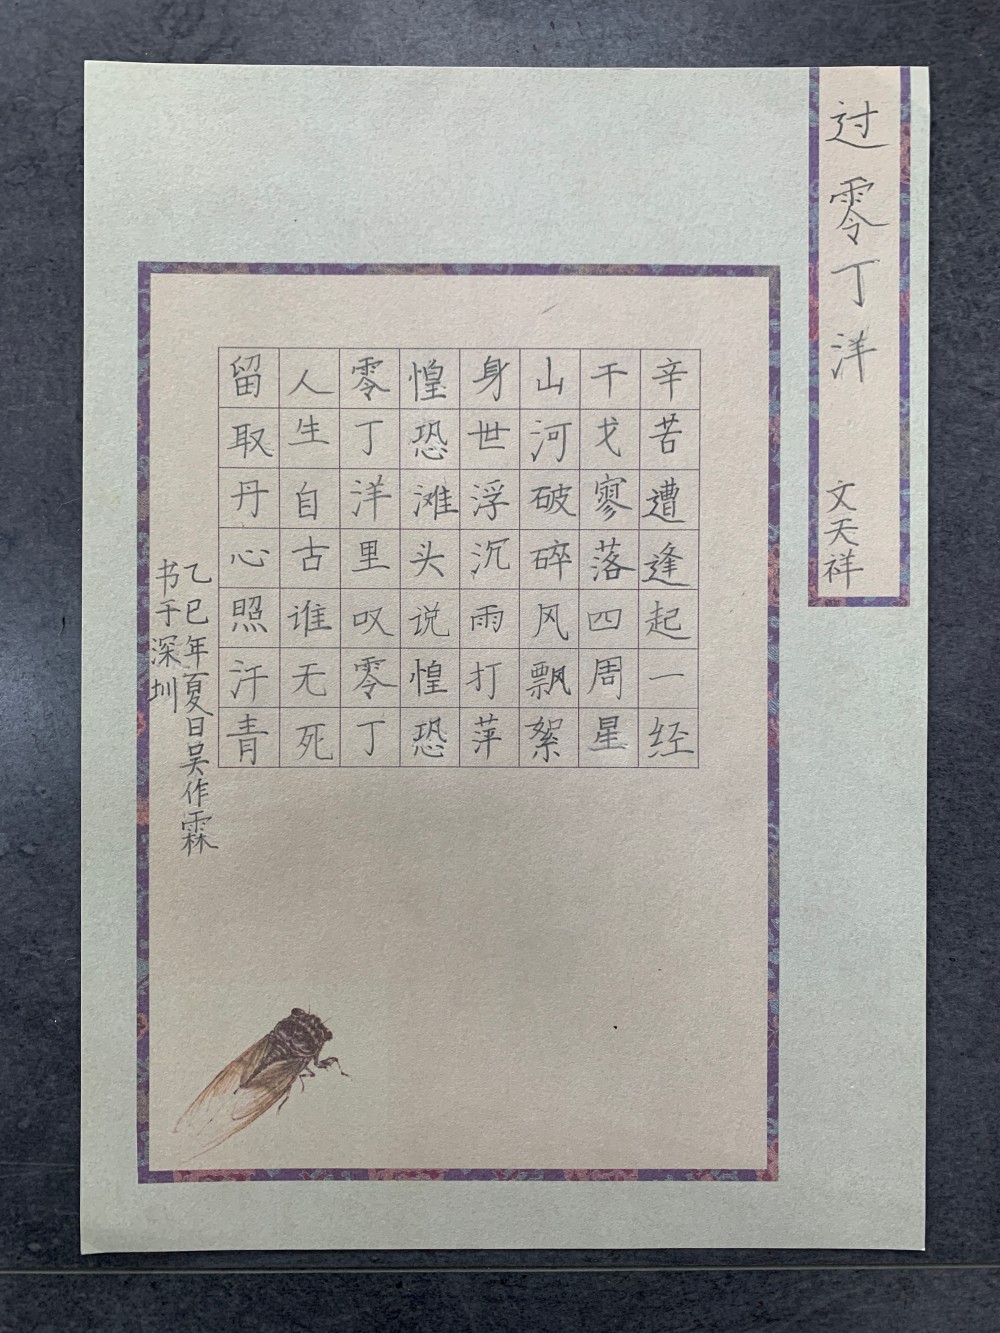 过零丁洋 文天祥
辛苦遭逢起一经
干戈寥落四周星
山河破碎风飘絮
身世浮沉雨打萍
惶恐滩头说惶恐
零丁洋里叹零丁
人生自古谁无死
留取丹心照汗青
乙巳年夏日吴作霖
书于深圳